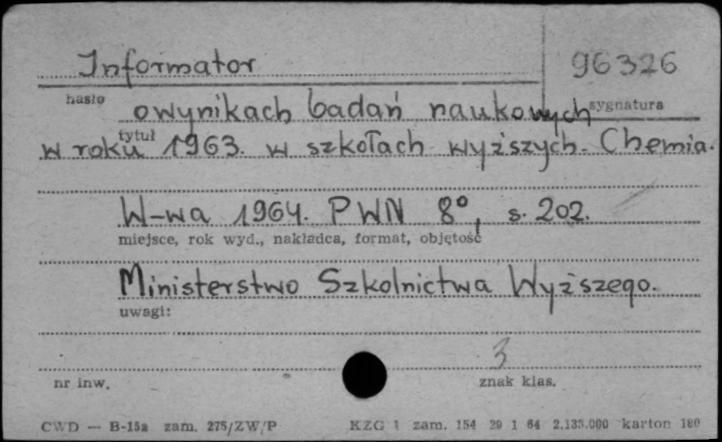 Informator 96326
hasło sygnatura
o wynikach badań naukowych
tytuł
w roku 1963. w szkołach wyższych. Chemia.
W-wa 1964. PWN 8°, s. 202.
miejsce, rok wyd., nakładca, format, objętość
Ministerstwo Szkolnictwa Wyższego.
uwagi:
3
nr inw. znak klas.
CWD — B-15a zam. 275/ZW/P KZG 1 zam. 154 29 1 64 2.135.000 karton 180